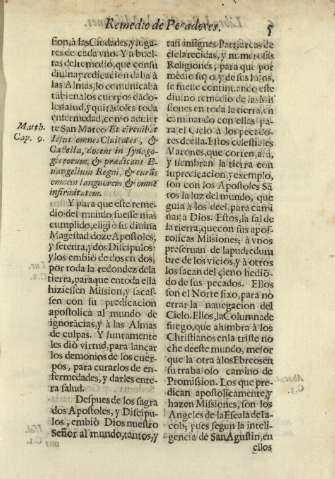 Remedio de Pecadores. 5
sion, à las Ciudades, y luga-
res de cada vno. Y a bueltas
del remedio, que con su
diuina predicacion daba à
las Almas, lo comunicaba
tambien a los cuerpos dãdo-
les salud, y quitãdoles toda
enfermedad, como aduier-
te San Marco Et circuibat
Iesus omnes Ciuitates, &
Castella, docens in Synago-
gis eorum, & prædicans E-
uangelium Regni, & curãs
omnem languorem & omnẽ
infirmitatem.
Matth.
Cap. 9.
Y para que este reme-
dio del mundo fuesse mas
cumplido, eligiò su diuina
Magestad doze Apostoles,
y setenta, y dos Discipulos:
y los embiò de dos en dos,
por toda la redondez de la
tierra, para que en toda ella
hiziessen Mission, y sacas-
sen con su predicacion
apostolica al mundo de
ignorãcias, y à las Almas
de culpas. Y juntamente
les diò virtud, para lançar
los demonios de los cuer-
pos, para curarlos de en-
fermedades, y darles ente-
ra salud.
Despues de los sagra
dos Apostoles, y Discipu-
los, embiò Dios nuestro
Señor al mundo, tantos, y
tan insignes Patriarcas de
esclarecidas, y numerosas
Religiones, para que por
medio suyo, y de sus hijos,
se fuesse continuando este
diuino remedio en la tierra, en
caminando con ellas pa-
ra el Cielo à los pecado-
res de ella. Estos celestiales
Varones, que corren, àrã,
y siembran la tierra con
su predicacion, y exemplo,
son con los Apostoles Sã-
tos la luz del mundo, que
guia à los deèl para cami-
nar, à Dios. Estos, la sal de
la tierra, que con sus apos-
tolicas Missiones, à vnos
preseruan de la pudredum
bre de los vicios, y à otros
los sacan del çieno hediõ-
do de sus pecados. Ellos
son el Norte fixo, para nò
errar la nauegacion del
Cielo. Ellos, la Columna de
fuego, que alumbra à los
Christianos en la triste no
che deeste mundo, mejor
que la otra à los Ebreos en
su trabajo camino de
Promission. Los que pre-
dican apostolicamente, y
hazen Missiones, son los
Angeles de la Escala de Ia-
cob, pues segun la inteli-
gencia de San Agustin, en
ellos